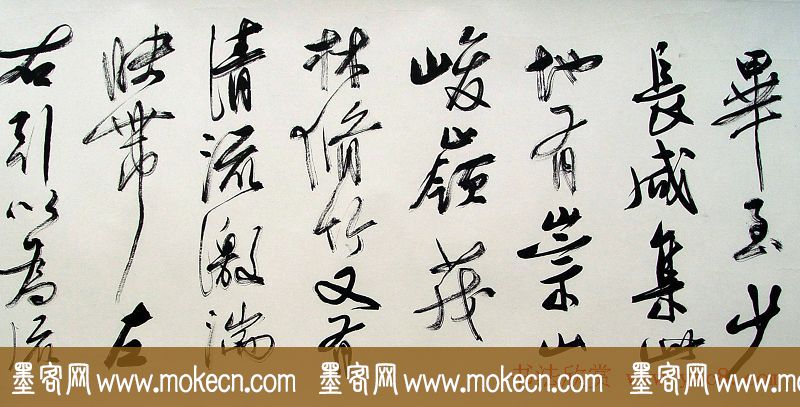 畢至少
長咸集此
地有崇山
峻嶺茂
林脩竹又有
清流激湍
映帶左
右引以為流
墨客网 www.mokecn.com 墨客网 www.mokecn.com 墨客网 www.mokecn.com
书法欣赏